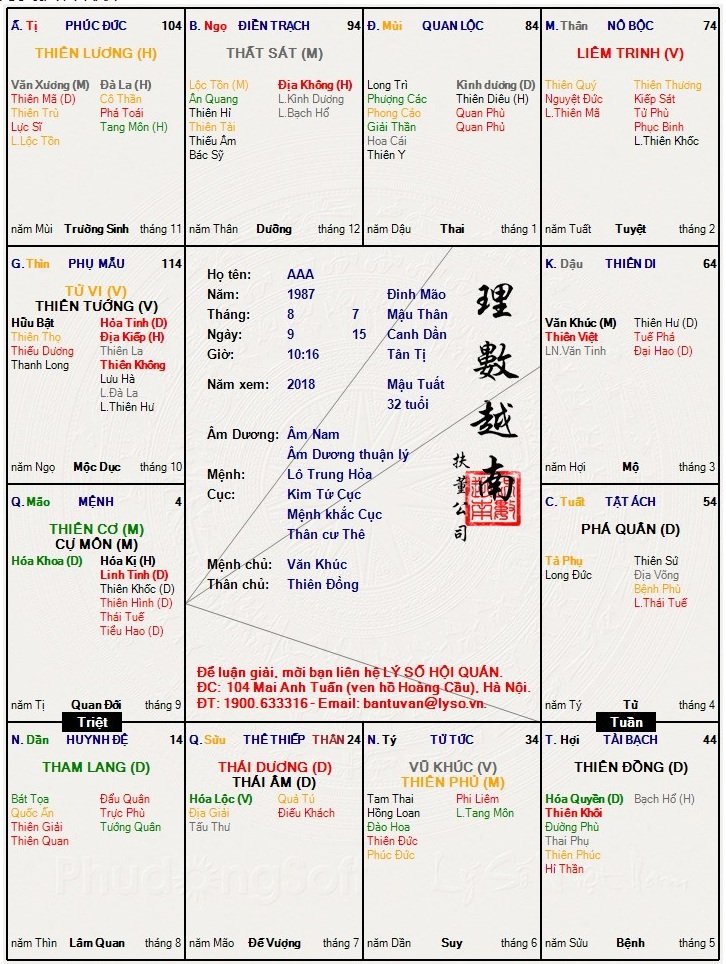 Ấ. Tị PHÚC ĐỨC 104
THIÊN LƯƠNG (H)
Văn Xương (M) Đà La (H)
Thiên Mã (D) Cô Thần
Thiên Trù Phá Toái
Lực Sĩ Tang Môn (H)
L.Lộc Tồn
năm Mùi Trường Sinh tháng 11
B. Ngọ ĐIỀN TRẠCH 94
THẤT SÁT (M)
Lộc Tồn (M) Địa Không (H)
Ân Quang L.Kình Dương
Thiên Hỉ L.Bạch Hổ
Thiên Tài
Thiếu Âm
Bác Sỹ
năm Thân Dưỡng tháng 12
Đ. Mùi QUAN LỘC 84
Long Trì Kình dương (D)
Phượng Các Thiên Diêu (H)
Phong Cáo Quan Phù
Giải Thần Quan Phủ
Hoa Cái
Thiên Y
năm Dậu Thai tháng 1
M. Thân NÔ BỘC 74
LIÊM TRINH (V)
Thiên Quý Thiên Thương
Nguyệt Đức Kiếp Sát
L.Thiên Mã Tử Phù
Phục Binh
L.Thiên Khốc
năm Tuất Tuyệt tháng 2
G. Thìn PHỤ MẪU 114
TỬ VI (V)
THIÊN TƯỚNG (V)
Hữu Bật Hỏa Tinh (D)
Thiên Thọ Địa Kiếp (H)
Thiếu Dương Thiên La
Thanh Long Thiên Không
Lưu Hà
L.Đà La
L.Thiên Hư
năm Ngọ Mộc Dục tháng 10
Họ tên: AAA
Năm: 1987 Đinh Mão
Tháng: 8 7 Mậu Thân
Ngày: 9 15 Canh Dần
Giờ: 10:16 Tân Tị
Năm xem: 2018 Mậu Tuất
32 tuổi
Âm Dương: Âm Nam
Âm Dương thuận lý
Mệnh: Lô Trung Hỏa
Cục: Kim Tứ Cục
Mệnh khắc Cục
Thân cư Thê
Mệnh chủ: Văn Khúc
Thân chủ: Thiên Đồng
理數越南
扶董公司
Để luận giải, mời bạn liên hệ LÝ SỐ HỘI QUÁN.
ĐC: 104 Mai Anh Tuấn (ven hồ Hoàng Cầu), Hà Nội.
ĐT: 1900.633316 - Email: bantuvan@lyso.vn.
K. Dậu THIÊN DI 64
Văn Khúc (M) Thiên Hư (D)
Thiên Việt Tuế Phá
LN.Văn Tinh Đại Hao (D)
năm Hợi Mộ tháng 3
Q. Mão MỆNH 4
THIÊN CƠ (M)
CỰ MÔN (M)
Hóa Khoa (D) Hóa Kị (H)
Linh Tinh (D)
Thiên Khốc (D)
Thiên Hình (D)
Thái Tuế
Tiểu Hao (D)
năm Tị Quan Đới tháng 9
C. Tuất TẬT ÁCH 54
PHÁ QUÂN (D)
Tả Phụ Thiên Sứ
Long Đức Địa Võng
Bệnh Phù
L.Thái Tuế
năm Tý Tử tháng 4
Triệt
Tuần
N. Dần HUYNH ĐỆ 14
THAM LANG (D)
Bát Tọa Đẩu Quân
Quốc Ấn Trực Phù
Thiên Giải Tướng Quân
Thiên Quan
năm Thìn Lâm Quan tháng 8
Q. Sửu THÊ THIẾP THÂN 24
THÁI DƯƠNG (D)
THÁI ÂM (D)
Hóa Lộc (V) Quả Tú
Địa Giải Điếu Khách
Tấu Thư
năm Mão Đế Vượng tháng 7
N. Tý TỬ TỨC 34
VŨ KHÚC (V)
THIÊN PHỦ (M)
Tam Thai Phi Liêm
Hồng Loan L.Tang Môn
Đào Hoa
Thiên Đức
Phúc Đức
năm Dần Suy tháng 6
T. Hợi TÀI BẠCH 44
THIÊN ĐỒNG (D)
Hóa Quyền (D) Bạch Hổ (H)
Thiên Khôi
Đường Phù
Thai Phụ
Thiên Phúc
Hỉ Thần
năm Sửu Bệnh tháng 5